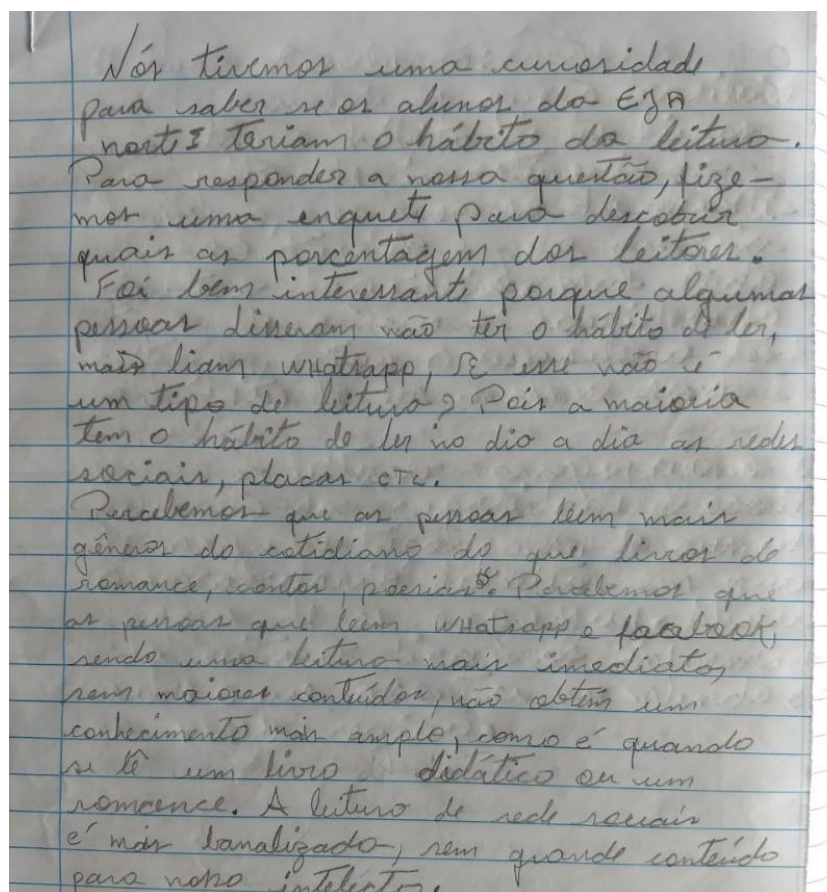 Nós tivemos uma curiosidade
para saber se os alunos da EJA
norte I teriam o hábito da leitura.
Para responder a nossa questão, fize-
mos uma enquete para descobrir
quais as porcentagem dos leitores.
Foi bem interessante porque algumas
pessoas disseram não ter o hábito de ler,
mais liam whatsapp, E esse não é
um tipo de leitura? Pois a maioria
tem o hábito de ler no dia a dia as redes
sociais, placas etc.
Percebemos que as pessoas lêem mais
gêneros do cotidiano do que livros de
romance, contos, poesias. Percebemos que
as pessoas que leem whatsapp e facebook,
sendo uma leitura mais imediata,
sem maiores conteúdos, não obtém um
conhecimento mais amplo, como é quando
se lê um livro didático ou um
romance. A leitura de rede sociais
é mais banalizada, sem grande conteúdo
para nosso intelecto.